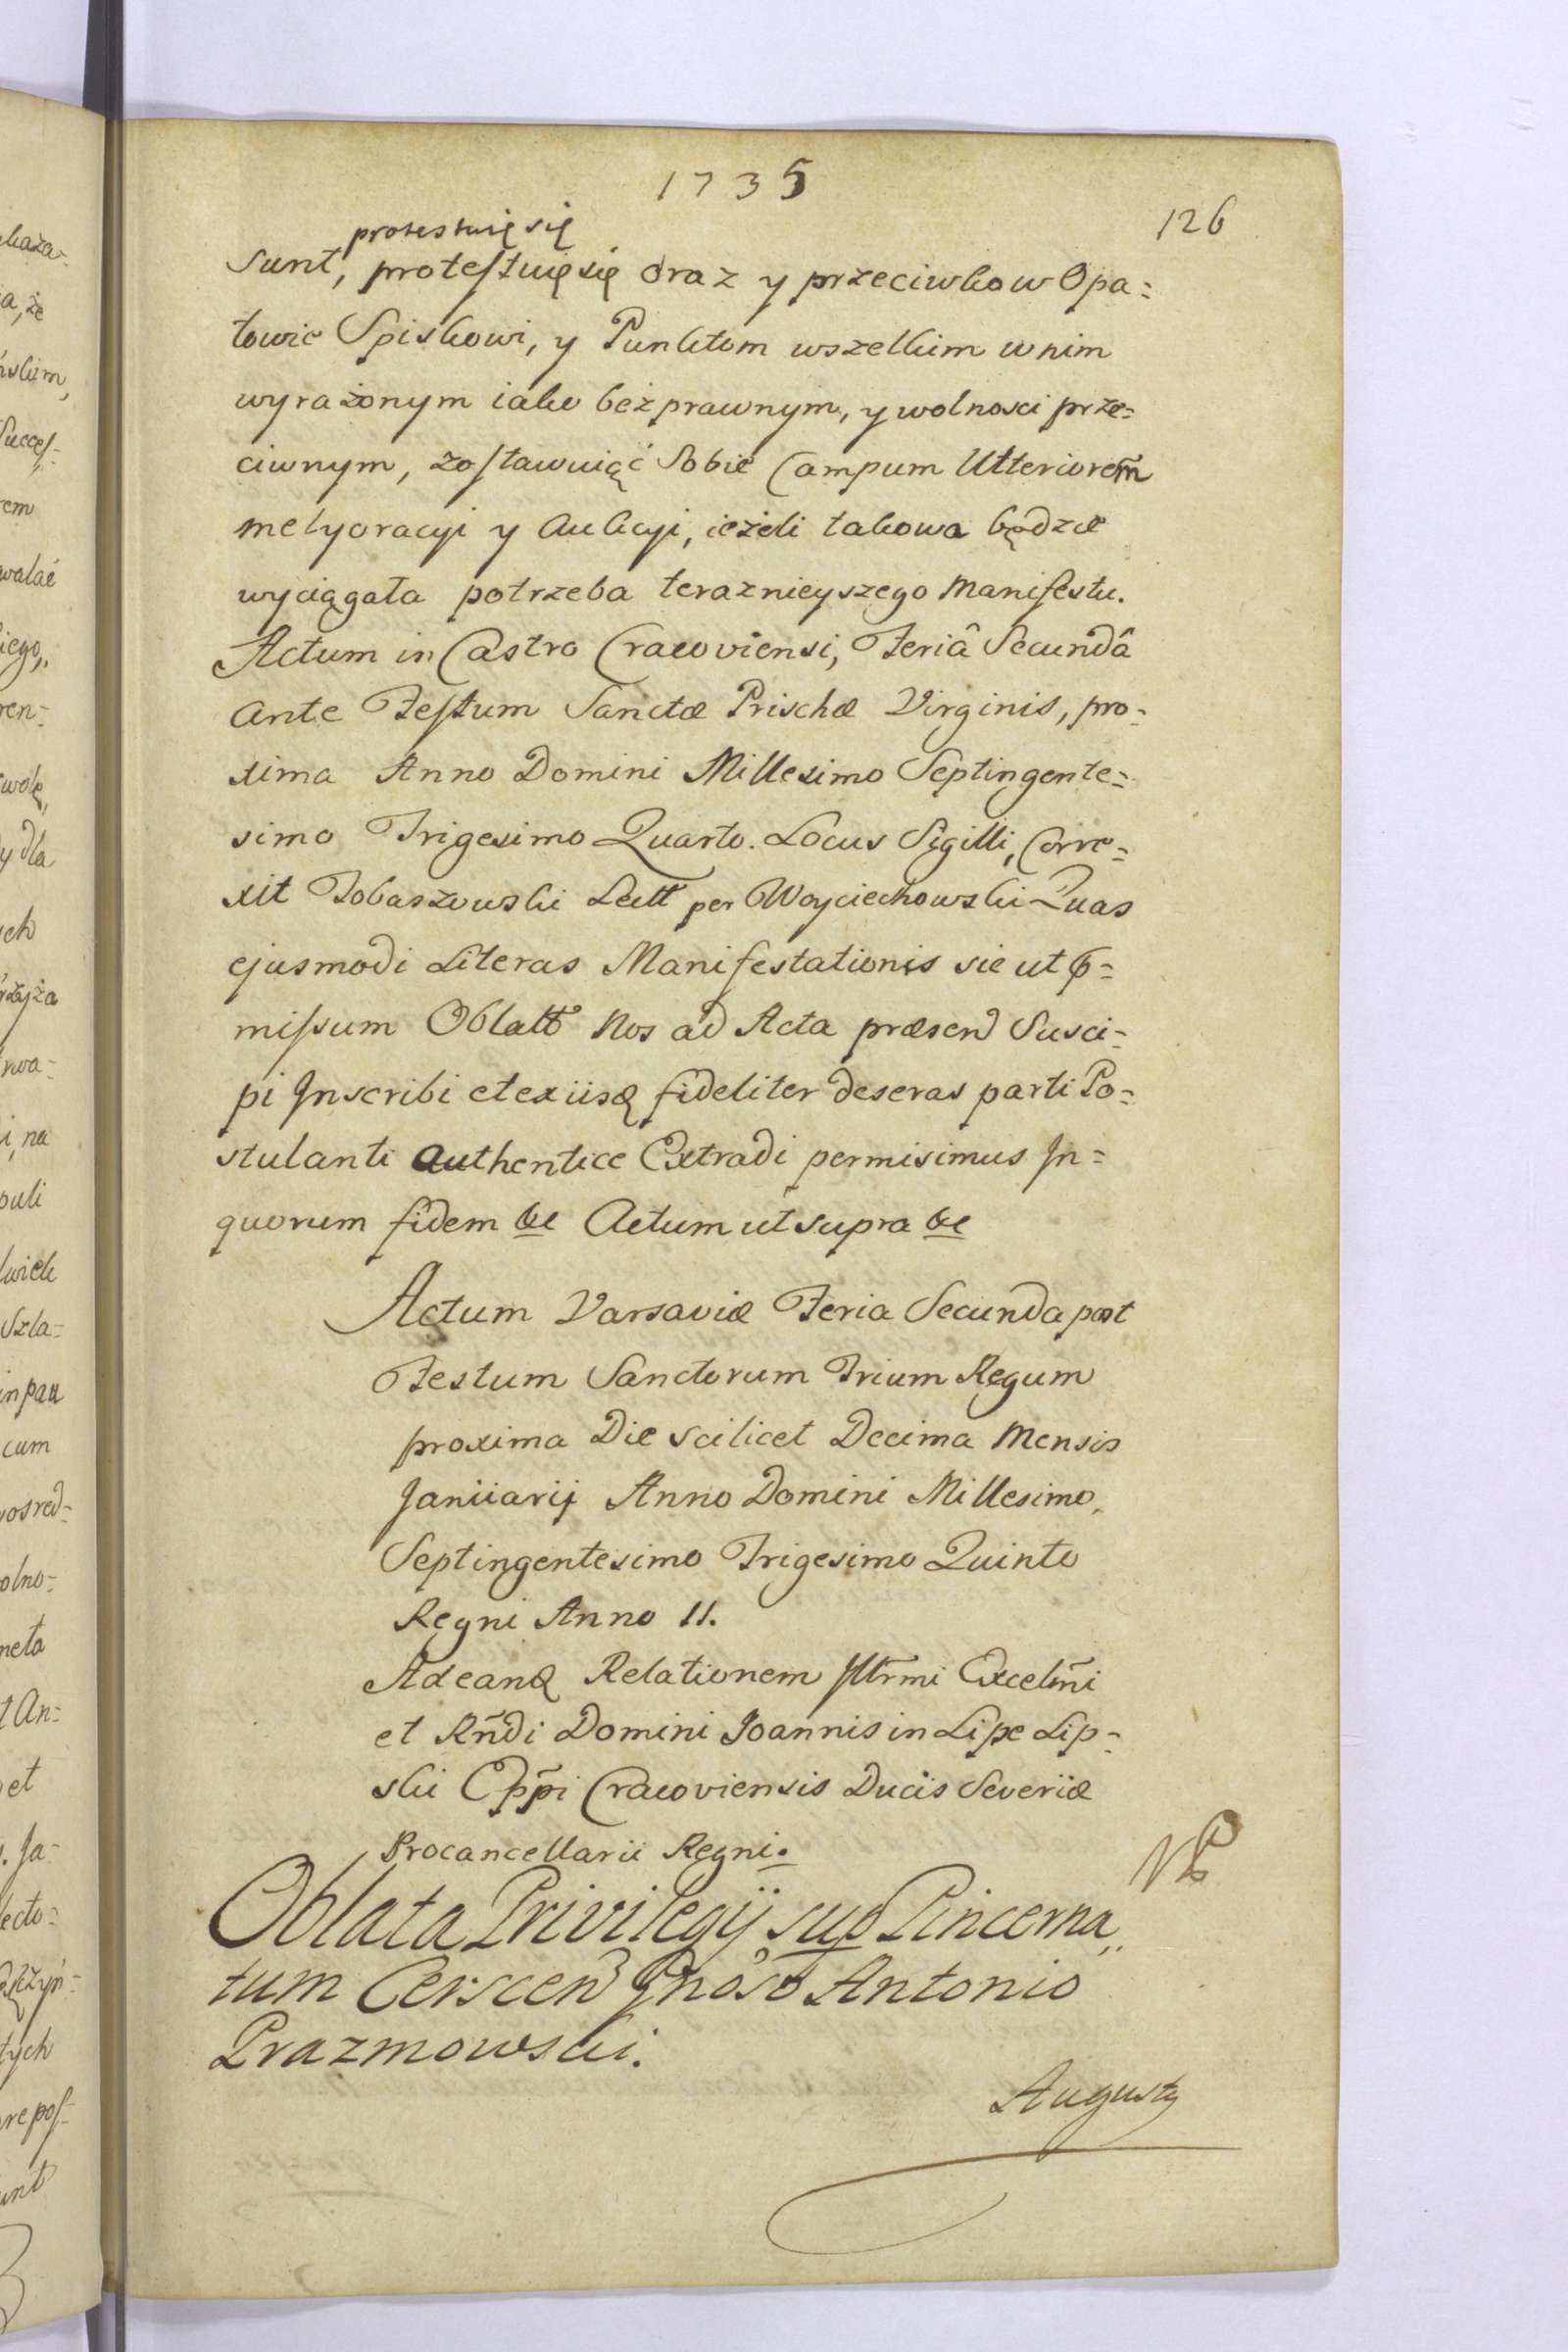 1735
126
protestuię się
sunt, protestuię się oraz y przeciwko w Opa=
towic Spiskowi, y Punktom wszelkim w nim
wyrażonym iako bezprawnym, y wolnosci prze=
ciwnym, zostawuiąć Sobie Campum Ulteriorem̄
melyoracyi y Aukcyi, ieżeli takowa będzie
wyciągała potrzeba teraznieyszego Manifestu.
Actum in Castro Cracoviensi, Feriâ Secundâ
Ante Festum Sanctæ Prischæ Virginis, pro=
xima Anno Domini Millesimo Septingente=
simo Trigesimo Quarto. Locus Sigilli, Corre=
xit Tobaszowski Lectt per Woyciechowski Quas
ejusmodi Literas Manifestationis sic ut p=
missum Oblatt Nos ad Acta præsend Susci=
pi Inscribi et ex iisq fideliter deseras parti Po=
stulanti authentice Extradi permisimus In=
quorum fidem &c Actum ut supra &c
Actum Varsaviæ Feria Secunda post
Festum Sanctorum Trium Regum
proxima Die scilicet Decima Mensis
Januarij Anno Domini Millesimo
Septingentesimo Trigesimo Quinto
Regni Anno II.
Ad eanq Relationem Illr̄mi Excelm̄i
et Rn̄di Domini Joannis in Lipe Lip=
ski Epp̄i Cracoviensis Ducis Severiæ
Procancellarii Regni.
Oblata Privilegij sup Pincerna„
tum Cerscen Gnoso Antonio
Prazmowski.
Augusty